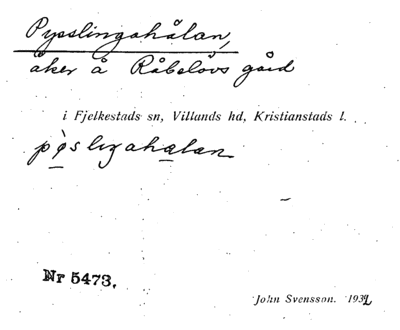 Pysslingahålan,
åker å Råbelövs gård
i Fjelkestads sn, Villands hd, Kristianstads l.
Nr 5473.
John Svensson. 1932